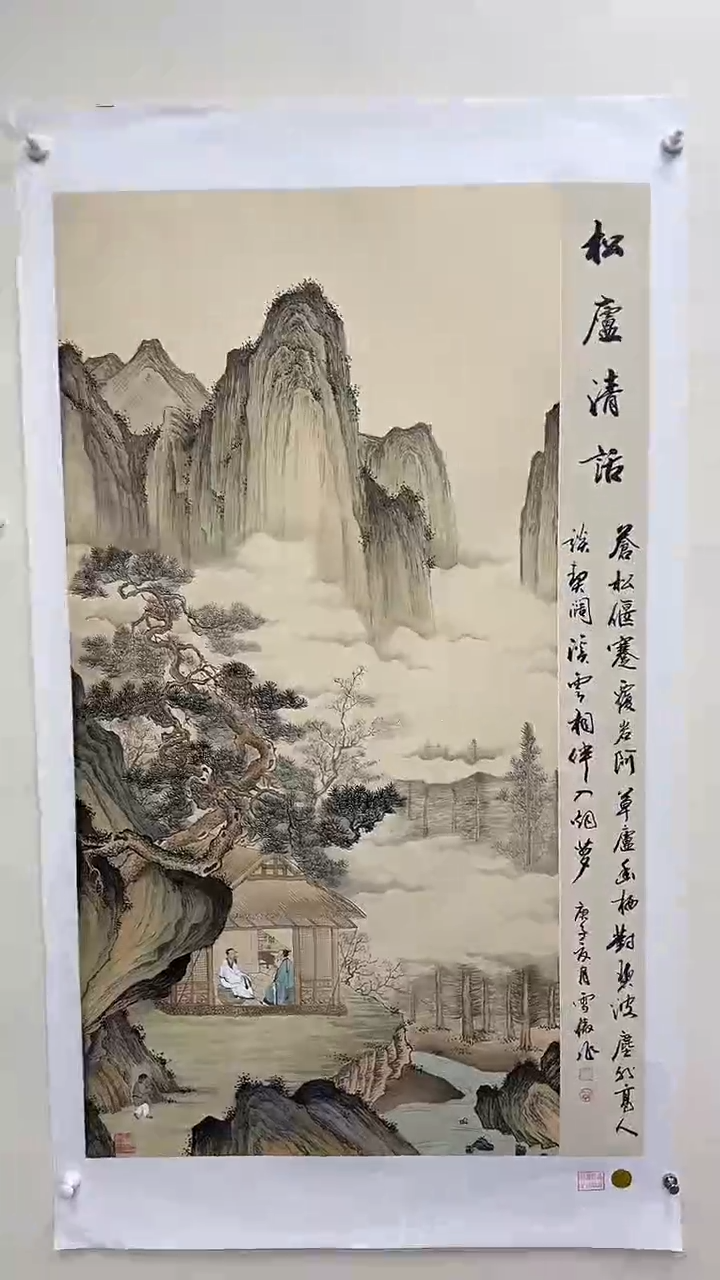 松廬清話
蒼松偃蹇覆岩阿草廬幽栖對碧波塵外高人
談契闊溪雲相伴入烟萝
庚子夏月雪傲作